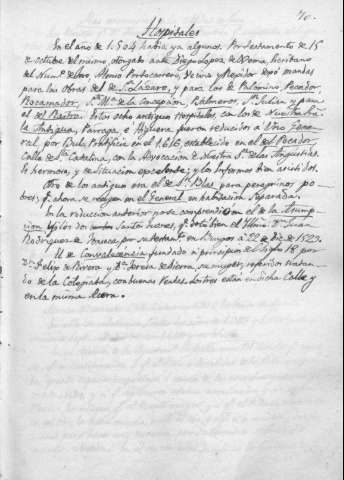 40.
Hospitales
En el año de 1.504 habia ya algunos. Por testamento de 15
de octubre del mismo, otorgado ante Diego Lopez de Osma, Escribano
del Num.º de Don Alonso Portocarrero, Vecino y Regidor dejó mandas
para las obras del de S. Lazaro, y para los de Palomino, Pecador,
Rocamador, S.ta M.ª de la Concepcion, Palmeros, S.n Julian y para
el del Pastro. Estos ocho antiguos Hospitales, con los de Nuestra Sra.
la Antigua, Parraga é Higuera, fueron reducidos á Uno Gene-
ral, por Bula Pontificia en el 1616, establecido en el del Pecador,
Calle de S.ta Catalina, con la Advocacion de Nuestra S.ra de las Angustias.
Es hermoso, y de situacion excelente; y los Enfermos bien asistidos.
Otro de los antiguos era el de S.n Blas para peregrinos po-
bres; q.e ahora se recogen en el General, en habitacion Separada.
En la reduccion anterior, no se comprendió en el de la Asump-
cion y Sor dos Santos Jueces, q.e dotó bien el Illmo. D.n Juan
Rodriguez de Fonseca, por su testam.to en Burgos á 22 de Dic.e de 1523.
El de Convalecencia, fundado á principios de Siglo 18 por
D.n Felix de Rivera y D.ª Teresa de Sierra, su muger, referidos tratan-
do de la Colegiata, con buenas rentas. Entres están en dicha Calle y
en la misma Acera.